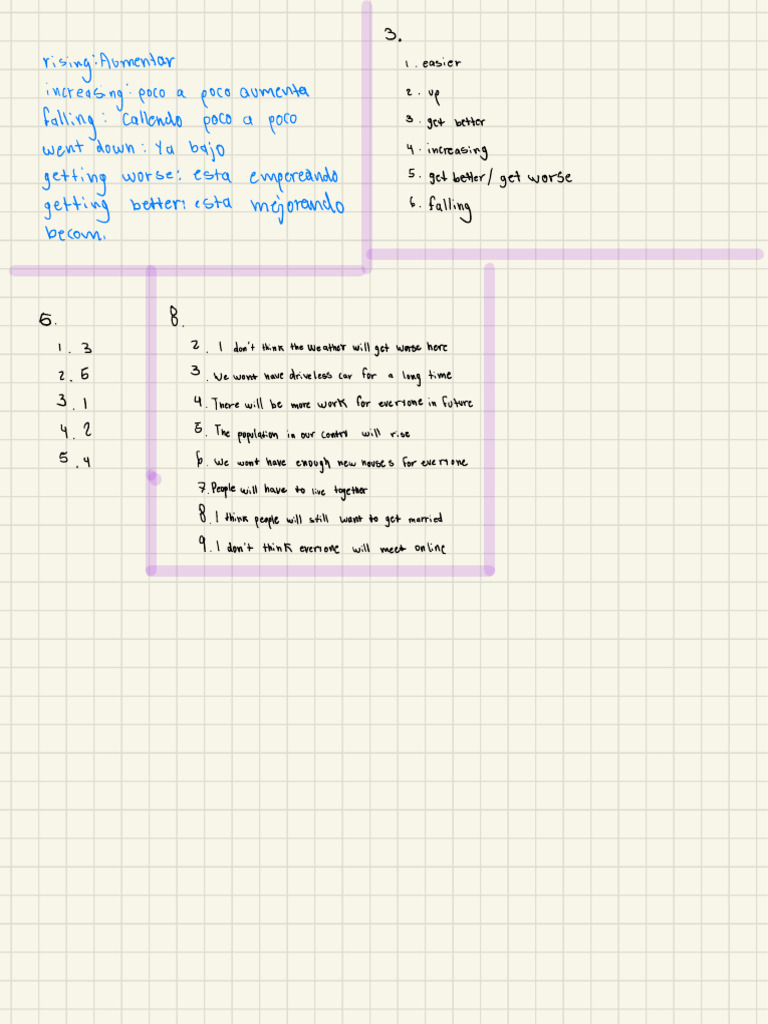 rising: Aumentar
increasing: poco a poco aumenta
falling: callendo poco a poco
went down: Ya bajo
getting worse: esta empereando
getting better: esta mejorando
becom.
3.
1. easier
2. up
3. get better
4. increasing
5. get better/ get worse
6. falling
5.
1. 3
2. 5
3. 1
4. 2
5. 4
8.
2. I don't think the weather will get worse here
3. We wont have driveless car for a long time
4. There will be more work for everyone in future
5. The population in our contry will rise
6. We wont have enough new houses for everyone
7. People will have to live together
8. I think people will still want to get married
9. I don't think everyone will meet online